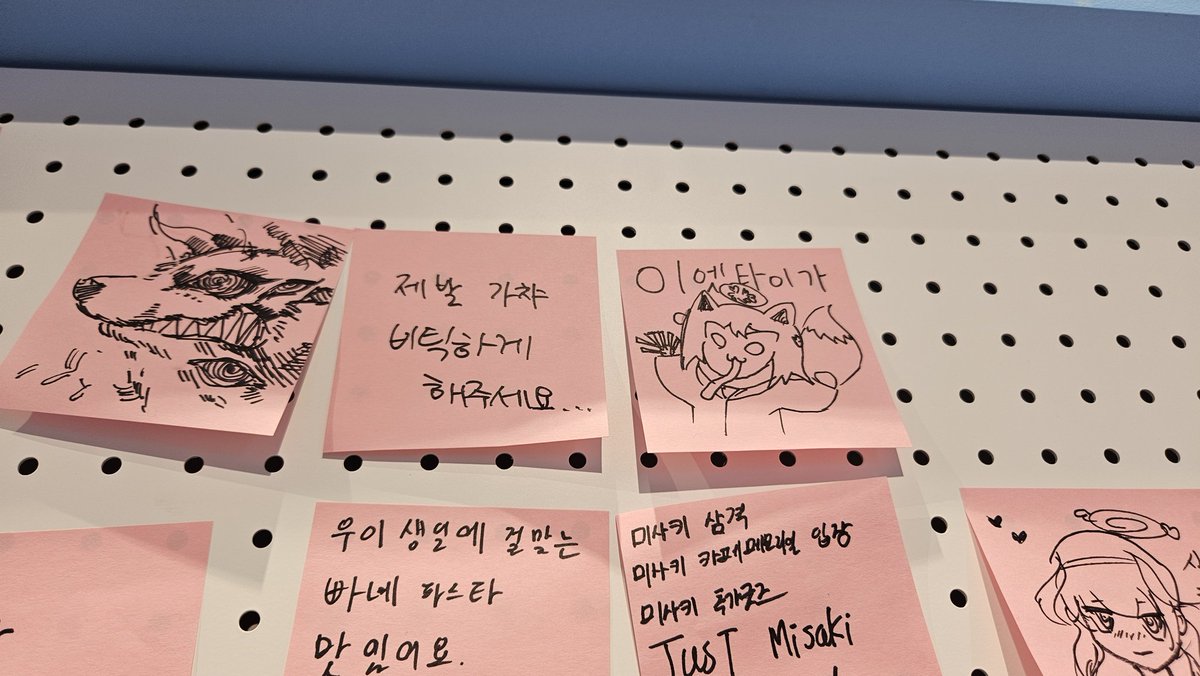 제발 가챠
비틱하게
해주세요...
이에타이가
우이 생일에 걸맞는
빠네 파스타
맛있어요.
미사키 삼격
미사키 카페메모리얼 입장
미사키
JusT Misaki